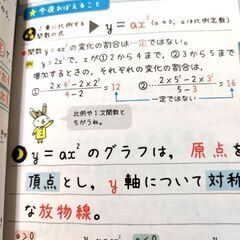 ★今夜おぼえること
に比例する
関数の式
y=ax² (a≠0, aは比例定数)
●関数y=ax²の変化の割合は一定ではない。
例 y=2x²で、xが①2から4まで、②3から5まで
増加するときの、それぞれの変化の割合は、
① (2×4²-2×2²)/(4-2)=12 ② (2×5²-2×3²)/(5-3)=16
一定ではない
比例や1次関数と
ちがうね。
y=ax²のグラフは、原点を
頂点とし、y軸について対称
な放物線。
a>0
a<0